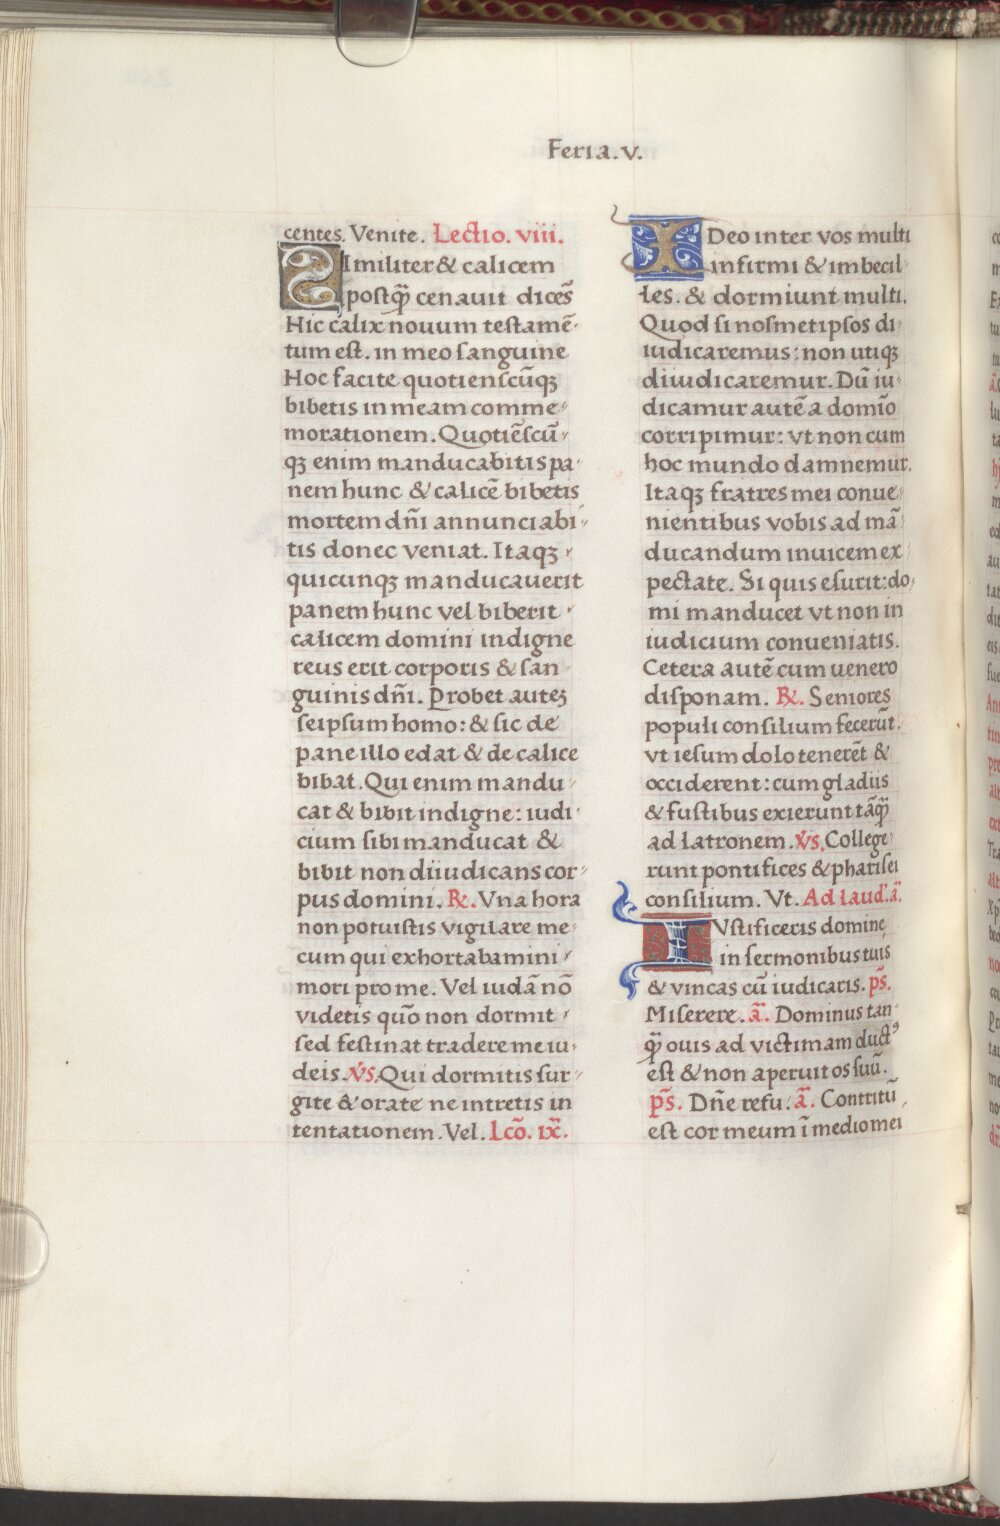 Feria.v.
centes. Venite. Lectio. viii.
SImiliter & calicem
postq̃ cenauit dicẽs
Hic calix nouum testamẽ-
tum est. in meo sanguine
Hoc facite quotienscũqꝫ
bibetis in meam comme-
morationem. Quotiẽscũ-
qꝫ enim manducabitis pa-
nem hunc & calicẽ bibetis
mortem dñi annunciabi-
tis donec veniat. Itaqꝫ
quicunqꝫ manducauerit
panem hunc vel biberit
calicem domini indigne
reus erit corporis & san
guinis dñi. Probet autеꝫ
seipsum homo: & sic de
pane illo edat & de calice
bibat. Qui enim mandu-
cat & bibit indigne: iudi-
cium sibi manducat &
bibit non diiudicans cor-
pus domini. ℟. Vna hora
non potuistis vigilare me-
cum qui exhortabamini
mori pro me. Vel iudã nõ
videtis quõ non dormit
sed festinat tradere me iu-
deis. v̓s. Qui dormitis sur-
gite & orate ne intretis in
tentationem. Vel. Lcõ. ix̃.
IDeo inter vos multi
infirmi & imbecil-
les. & dormiunt multi.
Quod si nosmetipsos di-
iudicaremus: non utiqꝫ
diiudicaremur. Dũ iu-
dicamur autẽ a domĩo
corripimur: vt non cum
hoc mundo damnemur.
Itaqꝫ fratres mei conue-
nientibus vobis ad mã-
ducandum inuicem ex-
pectate. Si quis esurit: do-
mi manducet vt non in
iudicium conueniatis.
Cetera autẽ cum uenero
disponam. ℟. Seniores
populi consilium fecerũt.
vt iesum dolo tenerẽt &
occiderent: cum gladiis
& fustibus exierunt tãq̃
ad latronem. v̓s. College-
runt pontifices & pharisei
consilium. Vt. Ad laud̓. ã.
IVstificeris domine
in sermonibus tuis
& vincas cũ iudicaris. ps̃.
Miserere. ã. Dominus tan-
q̃ ouis ad victimam ductꝰ
est & non aperuit os suũ.
ps̃. Dñe refu. ã. Contritũ
est cor meum ĩ medio mei